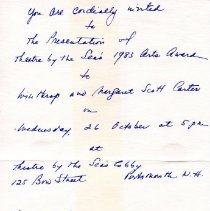 You are cordially invited
to
The Presentation of
Theatre by the Sea's 1983 Arts Award
to
Winthrop and Margaret Scott Carter
on
Wednesday, 26 October at 5 pm
at
Theatre by the Sea's Lobby
125 Bow Street Portsmouth N.H.